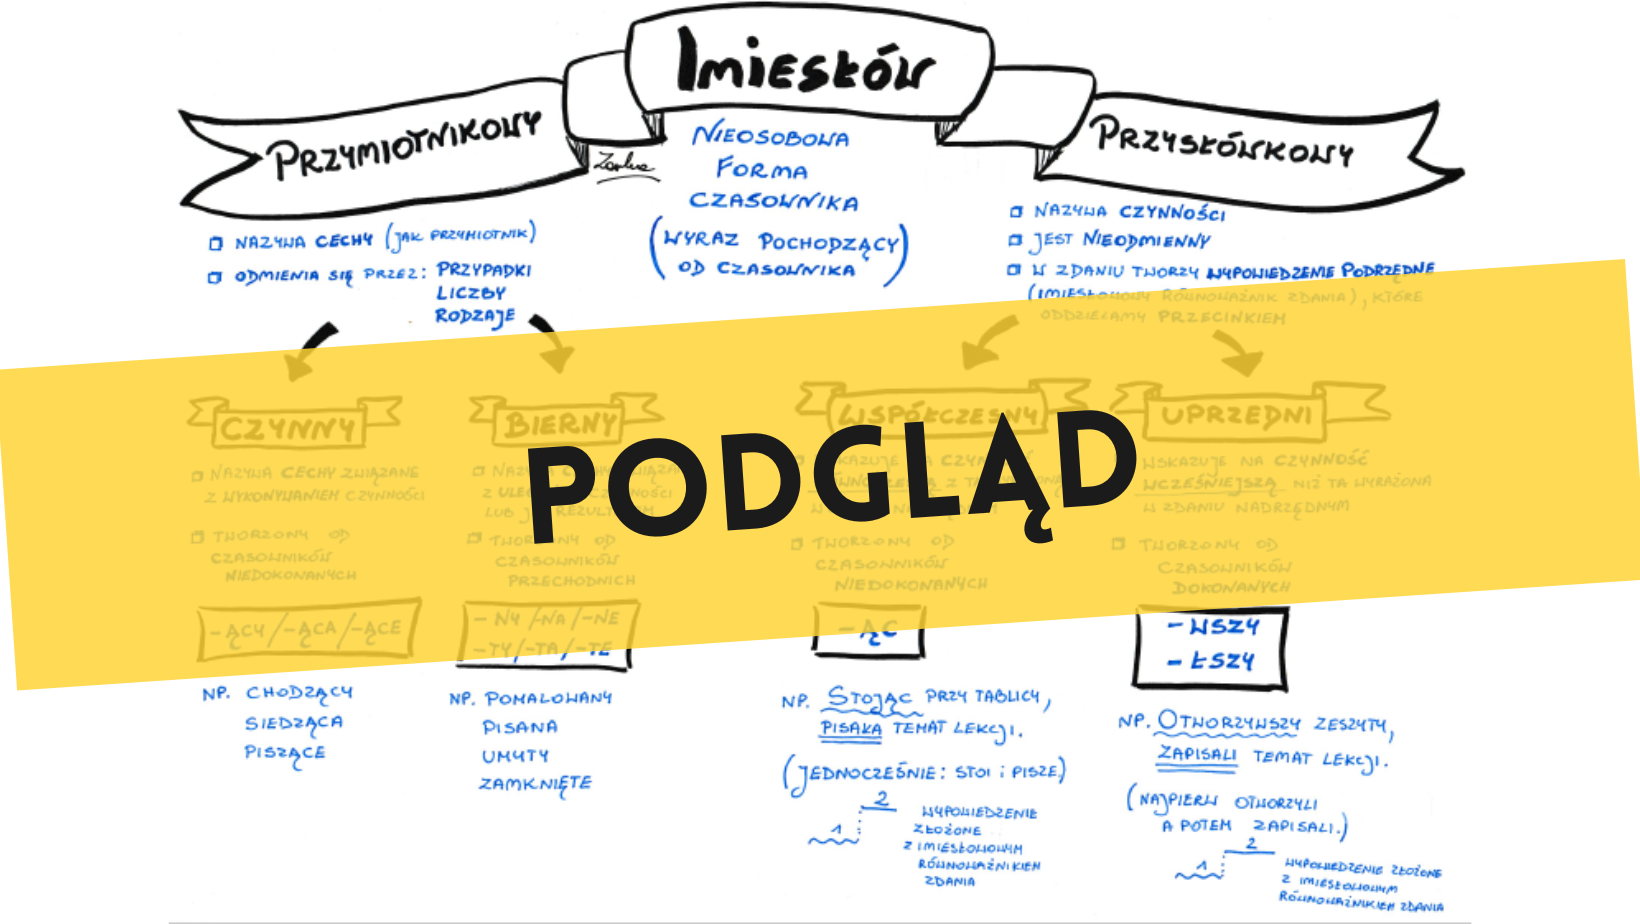 Imiesłów
PRZYMIOTNIKOWY
PRZYSŁÓWKOWY
NIEOSOBOWA
FORMA
CZASOWNIKA
(WYRAZ POCHODZĄCY
OD CZASOWNIKA)
NAZYWA CECHY (JAK PRZYMIOTNIK)
ODMIENIA SIĘ PRZEZ: PRZYPADKI
LICZBY
RODZAJE
NAZYWA CZYNNOŚCI
JEST NIEODMIENNY
W ZDANIU TWORZY WYPOWIEDZENIE PODRZĘDNE
(IMIESŁOWOWY RÓWNOWAŻNIK ZDANIA), KTÓRE
ODDZIELAMY PRZECINKIEM
CZYNNY
NAZYWA CECHY ZWIĄZANE
Z WYKONYWANIEM CZYNNOŚCI
TWORZONY OD
CZASOWNIKÓW
NIEDOKONANYCH
-ĄCY/-ĄCA/-ĄCE
NP. CHODZĄCY
SIEDZĄCA
PISZĄCE
BIERNY
LUB REZULT
TWORZONY OD
CZASOWNIKÓW
PRZECHODNICH
-NY/-NA/-NE
-TY/-TA/-TE
NP. POMALOWANY
PISANA
UMYTY
ZAMKNIĘTE
WSPÓŁCZESNY
TWORZONY OD
CZASOWNIKÓW
NIEDOKONANYCH
-ĄC
NP. STOJĄC PRZY TABLICY,
PISAŁA TEMAT LEKCJI.
(JEDNOCZEŚNIE: STOI i PISZE.)
1 2
WYPOWIEDZENIE
ZŁOŻONE
Z IMIESŁOWOWYM
RÓWNOWAŻNIKIEM
ZDANIA
UPRZEDNI
WSKAZUJE NA CZYNNOŚĆ
WCZEŚNIEJSZĄ NIŻ TA WYRAŻONA
W ZDANIU NADRZĘDNYM
TWORZONY OD
CZASOWNIKÓW
DOKONANYCH
-WSZY
-ŁSZY
NP. OTWORZYWSZY ZESZYTY,
ZAPISALI TEMAT LEKCJI.
(NAJPIERW OTWORZYLI
A POTEM ZAPISALI.)
1 2
WYPOWIEDZENIE ZŁOŻONE
Z IMIESŁOWOWYM
RÓWNOWAŻNIKIEM ZDANIA
PODGLĄD